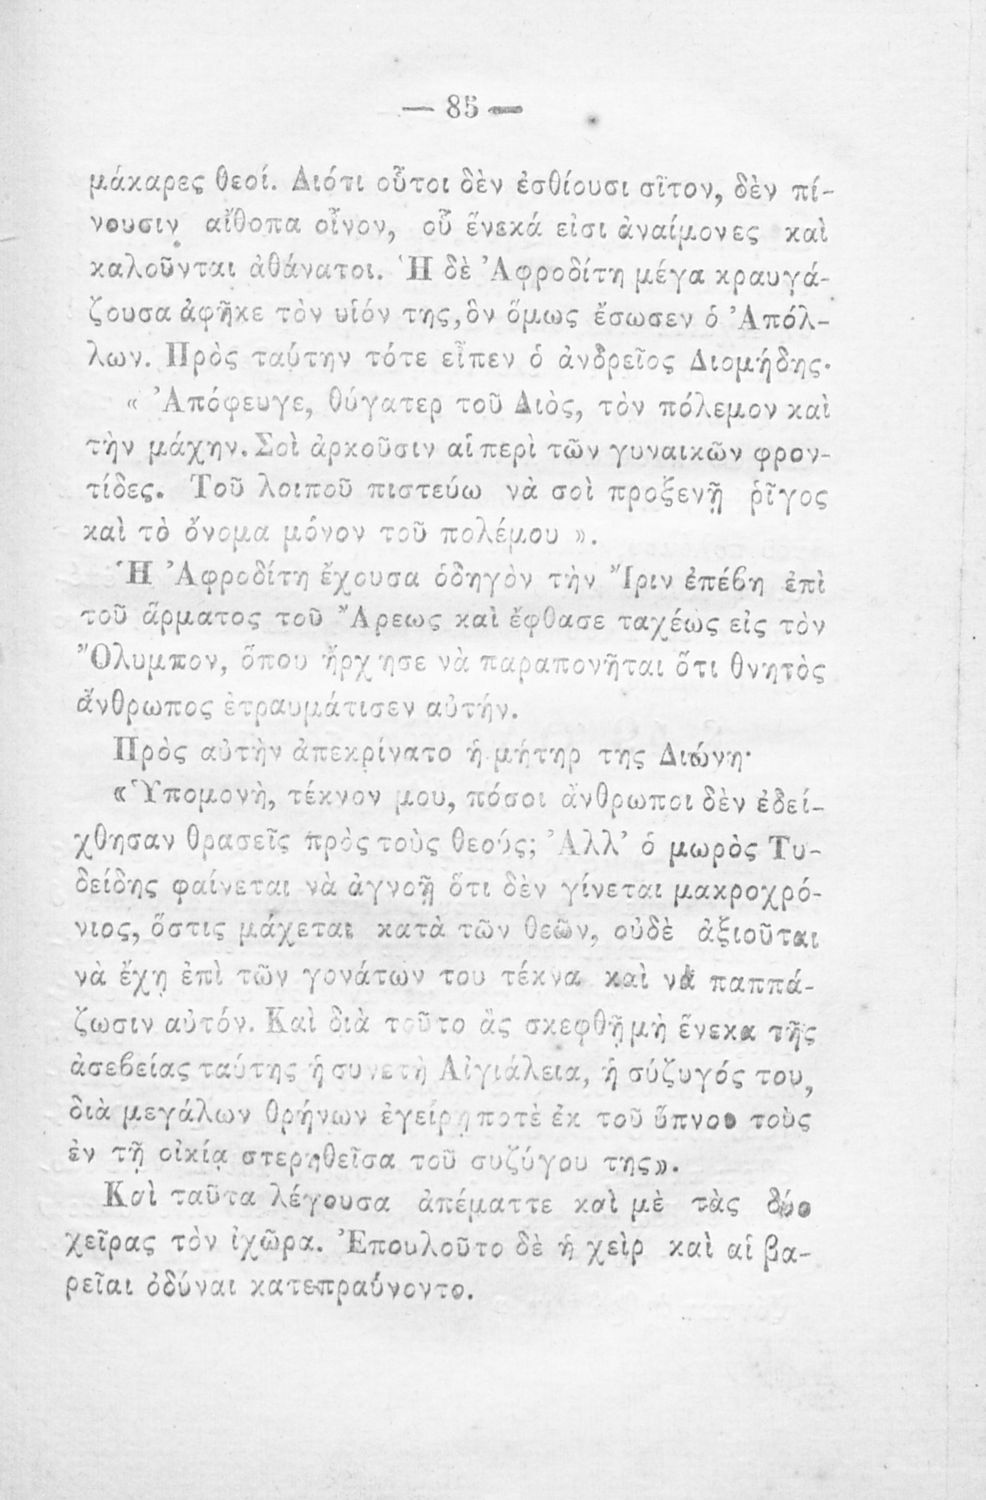 — 85 —
μάκαρες θεοί. Διότι οὗτοι δὲν ἐσθίουσι σῖτον, δὲν πί-
νουσιν αἴθοπα οἶνον, οὗ ἕνεκά εἰσι ἀναίμονες καὶ
καλοῦνται ἀθάνατοι. Ἡ δὲ Ἀφροδίτη μέγα κραυγά-
ζουσα ἀφῆκε τὸν υἱόν της, ὃν ὅμως ἔσωσεν ὁ Ἀπόλ-
λων. Πρὸς ταύτην τότε εἶπεν ὁ ἀνδρεῖος Διομήδης·
« Ἀπόφευγε, θύγατερ τοῦ Διὸς, τὸν πόλεμον καὶ
τὴν μάχην. Σοὶ ἀρκοῦσιν αἱ περὶ τῶν γυναικῶν φρον-
τίδες. Τοῦ λοιποῦ πιστεύω νὰ σοὶ προξενῇ ῥῖγος
καὶ τὸ ὄνομα μόνον τοῦ πολέμου ».
Ἡ Ἀφροδίτη ἔχουσα ὁδηγὸν τὴν Ἴριν ἐπέβη ἐπὶ
τοῦ ἅρματος τοῦ Ἄρεως καὶ ἔφθασε ταχέως εἰς τὸν
Ὄλυμπον, ὅπου ἤρχησε νὰ παραπονῆται ὅτι θνητὸς
ἄνθρωπος ἐτραυμάτισεν αὐτήν.
Πρὸς αὐτὴν ἀπεκρίνατο ἡ μήτηρ της Διώνη·
« Ὑπομονὴ, τέκνον μου, πόσοι ἄνθρωποι δὲν ἐδεί-
χθησαν θρασεῖς πρὸς τοὺς θεούς; Ἀλλ’ ὁ μωρὸς Τυ-
δείδης φαίνεται νὰ ἀγνοῇ ὅτι δὲν γίνεται μακροχρό-
νιος, ὅστις μάχεται κατὰ τῶν θεῶν, οὐδὲ ἀξιοῦται
νὰ ἔχῃ ἐπὶ τῶν γονάτων του τέκνα καὶ νὰ παππά-
ζωσιν αὐτόν. Καὶ διὰ τοῦτο ἂς σκεφθῇ μὴ ἕνεκα τῆς
ἀσεβείας ταύτης ἡ συνετὴ Αἰγιάλεια, ἡ σύζυγός του,
διὰ μεγάλων θρήνων ἐγείρῃ ποτὲ ἐκ τοῦ ὕπνου τοὺς
ἐν τῇ οἰκίᾳ στερηθεῖσα τοῦ συζύγου της».
Καὶ ταῦτα λέγουσα ἀπέματτε καὶ μὲ τὰς δύο
χεῖρας τὸν ἰχῶρα. Ἐπουλοῦτο δὲ ἡ χεὶρ καὶ αἱ βα-
ρεῖαι ὀδύναι κατεπραΰνοντο.